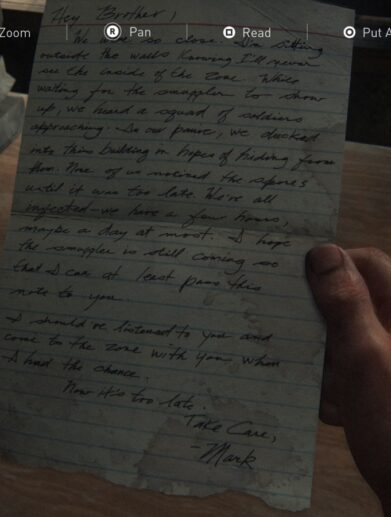 Hey Brother,
Zoom R Pan Read Put A
We were so close. I'm sitting
outside the walls knowing I'll never
see the inside of the zone. While
waiting for the smuggler to show
up, we heard a squad of soldiers
approaching. In our panic, we ducked
into this building in hopes of hiding from
them. None of us noticed the spores
until it was too late. We're all
infected - we have a few hours,
maybe a day at most. I hope
the smuggler is still coming so
that I can at least pass this
note to you.
I should've listened to you and
come to the zone with you when
I had the chance.
Now it's too late.
Take Care,
- Mark